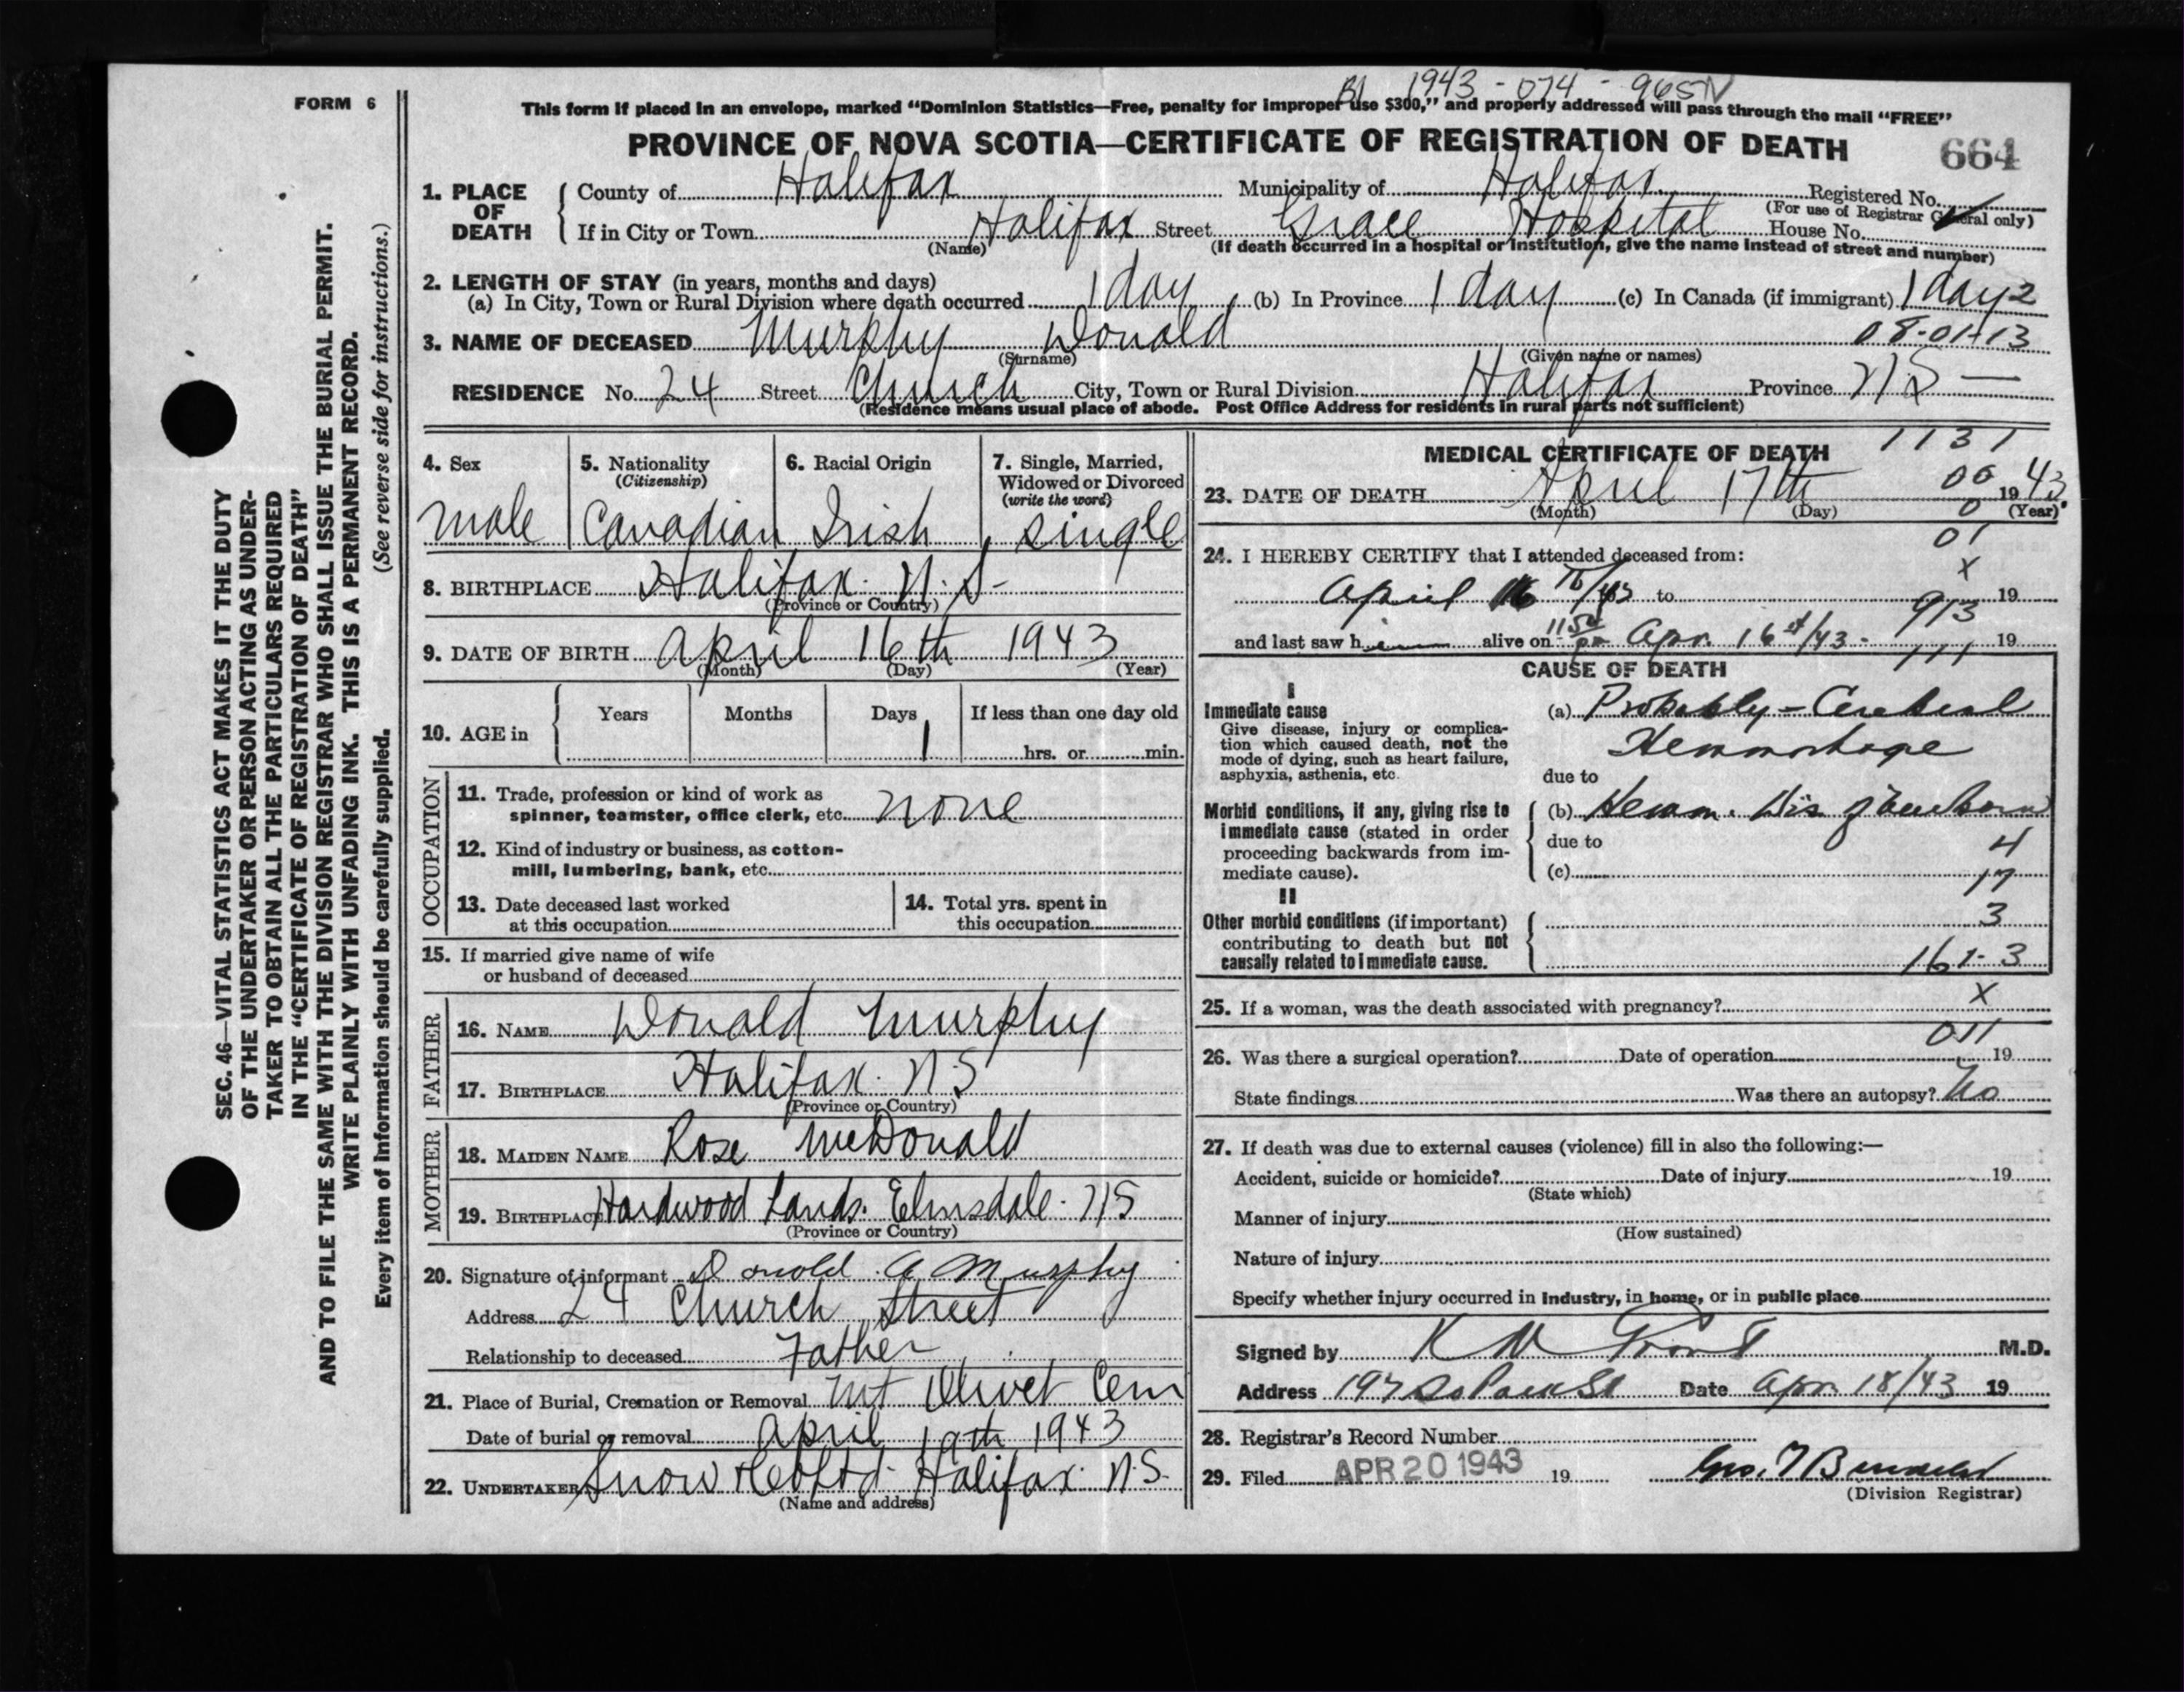 FORM 6
B1 1943 - 074 - 965N
This form if placed in an envelope, marked “Dominion Statistics—Free, penalty for improper use $300,” and properly addressed will pass through the mail “FREE”
PROVINCE OF NOVA SCOTIA—CERTIFICATE OF REGISTRATION OF DEATH 664
1. PLACE OF DEATH
County of Halifax Municipality of Halifax Registered No.
(For use of Registrar General only)
If in City or Town Halifax Street Grace Hospital House No.
(Name) (If death occurred in a hospital or institution, give the name instead of street and number)
2. LENGTH OF STAY (in years, months and days)
(a) In City, Town or Rural Division where death occurred 1 day (b) In Province 1 day (c) In Canada (if immigrant) 1 day 2
08-01-13
3. NAME OF DECEASED Murphy Donald
(Surname) (Given name or names)
RESIDENCE No. 24 Street Church City, Town or Rural Division Halifax Province N S —
(Residence means usual place of abode. Post Office Address for residents in rural parts not sufficient)
SEC. 46—VITAL STATISTICS ACT MAKES IT THE DUTY
OF THE UNDERTAKER OR PERSON ACTING AS UNDER-
TAKER TO OBTAIN ALL THE PARTICULARS REQUIRED
IN THE “CERTIFICATE OF REGISTRATION OF DEATH”
AND TO FILE THE SAME WITH THE DIVISION REGISTRAR WHO SHALL ISSUE THE BURIAL PERMIT.
WRITE PLAINLY WITH UNFADING INK. THIS IS A PERMANENT RECORD.
Every item of information should be carefully supplied. (See reverse side for instructions.)
4. Sex 5. Nationality 6. Racial Origin 7. Single, Married,
(Citizenship) Widowed or Divorced
(write the word)
male Canadian Irish single
8. BIRTHPLACE Halifax. N. S-
(Province or Country)
9. DATE OF BIRTH April 16th 1943
(Month) (Day) (Year)
10. AGE in Years Months Days If less than one day old
1 hrs. or min.
OCCUPATION
11. Trade, profession or kind of work as
spinner, teamster, office clerk, etc. none
12. Kind of industry or business, as cotton-
mill, lumbering, bank, etc.
13. Date deceased last worked
at this occupation
14. Total yrs. spent in
this occupation
15. If married give name of wife
or husband of deceased
FATHER
16. NAME Donald Murphy
17. BIRTHPLACE Halifax. N. S
(Province or Country)
MOTHER
18. MAIDEN NAME Rose McDonald
19. BIRTHPLACE Hardwood Lands. Elmsdale. N S
(Province or Country)
20. Signature of informant Donald A Murphy
Address 24 Church Street
Relationship to deceased Father
21. Place of Burial, Cremation or Removal Mt Olivet Cem
Date of burial or removal April 19th 1943
22. UNDERTAKER Snow & Co Ltd. Halifax. N. S.
(Name and address)
MEDICAL CERTIFICATE OF DEATH 1131
23. DATE OF DEATH April 17th 00 1943
(Month) (Day) 0 (Year)
01
24. I HEREBY CERTIFY that I attended deceased from:
x
April 16 th/43 to 19
913
and last saw him alive on 11 50 pm Apr. 16 st/43 - 19
111
CAUSE OF DEATH
I
Immediate cause
Give disease, injury or complica-
tion which caused death, not the
mode of dying, such as heart failure,
asphyxia, asthenia, etc.
(a) Probably - Cerebral
Hemmorhage
due to
Morbid conditions, if any, giving rise to
immediate cause (stated in order
proceeding backwards from im-
mediate cause).
(b) Hemm. Dis of newborn
due to 4
(c) 17
II
Other morbid conditions (if important)
contributing to death but not
causally related to immediate cause.
3
161-3
25. If a woman, was the death associated with pregnancy? x
011
26. Was there a surgical operation? Date of operation 19
State findings Was there an autopsy? No
27. If death was due to external causes (violence) fill in also the following:—
Accident, suicide or homicide? Date of injury 19
(State which)
Manner of injury
(How sustained)
Nature of injury
Specify whether injury occurred in industry, in home, or in public place
Signed by K M Grant M.D.
Address 197 So Park St Date Apr. 18/43 19
28. Registrar's Record Number
29. Filed APR 20 1943 19 Geo. T
(Division Registrar)